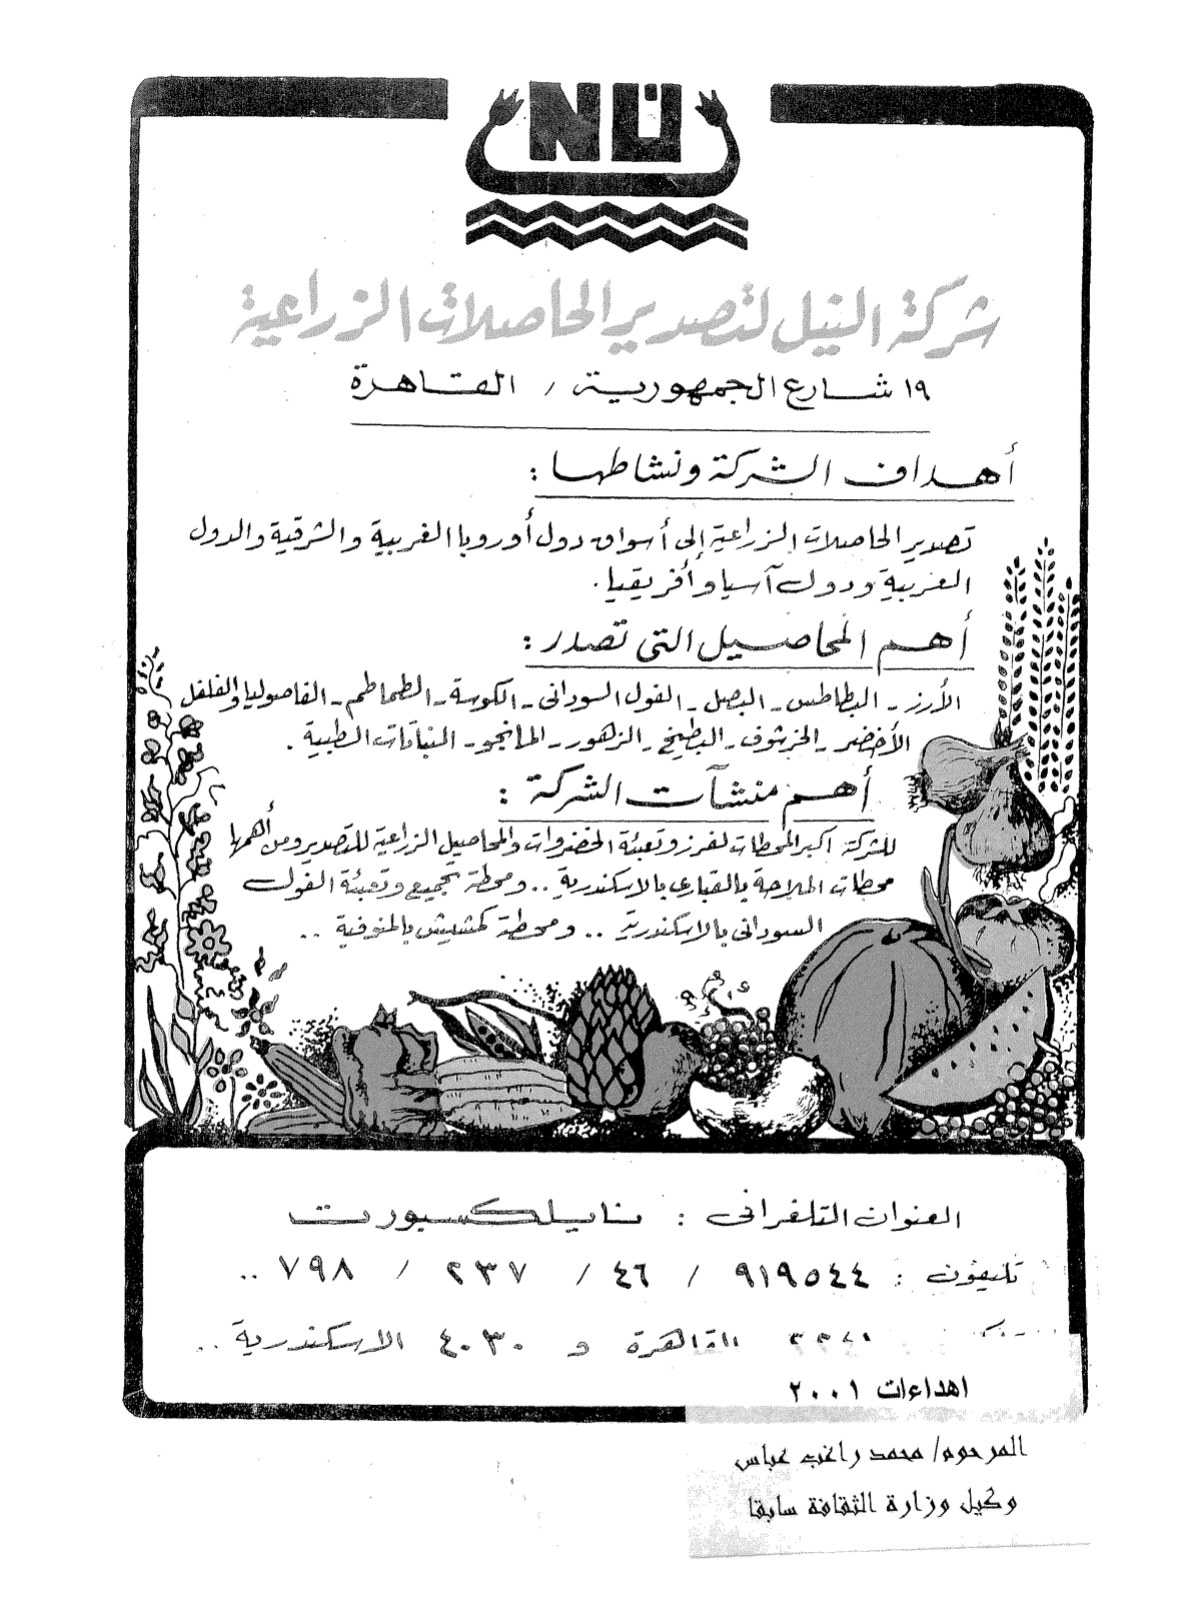 NU
شركة النيل لتصدير الحاصلات الزراعية
١٩ شارع الجمهورية / القاهرة
أهداف الشركة ونشاطها :
تصدير الحاصلات الزراعية إلى أسواق دول أوروبا الغربية والشرقية والدول
العربية ودول آسيا وأفريقيا .
أهم المحاصيل التى تصدر :
الأرز - البطاطس - البصل - الفول السودانى - الكوسة - الطماطم - الفاصوليا والفلفل
الأخضر - الخرشوف - البطيخ - الزهور - المانجو - النباتات الطبية .
أهم منشآت الشركة :
للشركة أكبر المحطات لفرز وتعبئة الخضروات والمحاصيل الزراعية للتصدير ومن أهمها
محطات الملاحة بالقبارى بالاسكندرية .. ومحطة تجميع وتعبئة الفول
السودانى بالاسكندرية .. ومحطة كمشيش بالمنوفية ..
العنوان التلغرافى : نايلكسبورت
تليفون : ٩١٩٥٤٤ / ٤٦ / ٢٣٧ / ٧٩٨ ..
القاهرة و ٤٠٣٠ الاسكندرية ..
اهداءات ٢٠٠١
المرحوم/ محمد راغب عباس
وكيل وزارة الثقافة سابقا